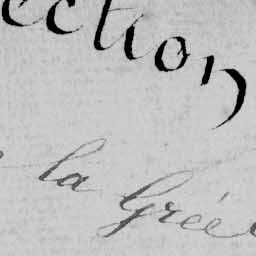 ection
la Grée